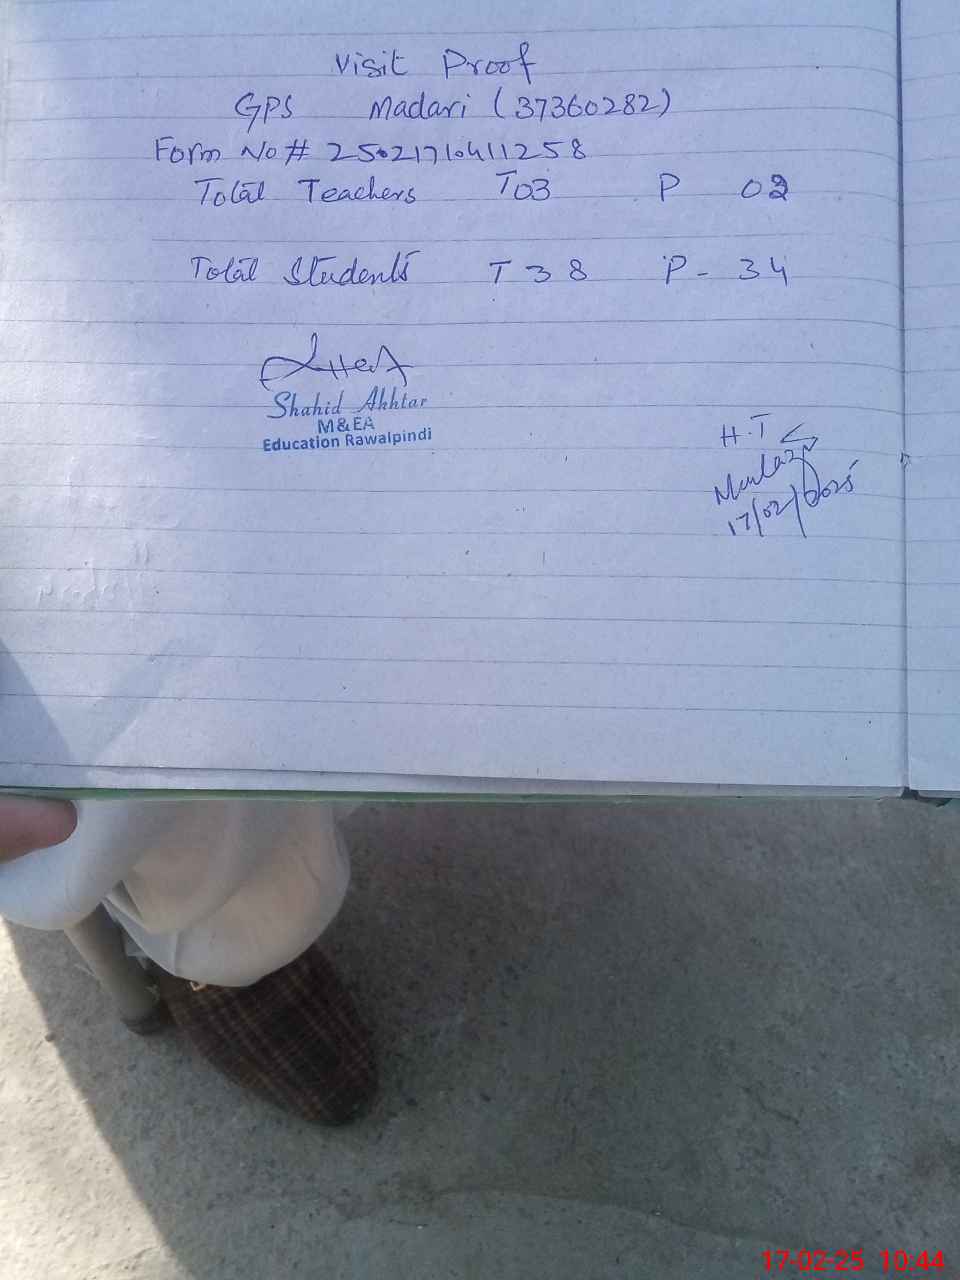 Visit Proof
GPS Madari (37360282)
Form No # 25021710411258
Total Teachers T03 P 02
Total Students T 38 P - 34
Shahid Akhtar
M&EA
Education Rawalpindi
H.T
17/02/2025
17-02-25 10:44